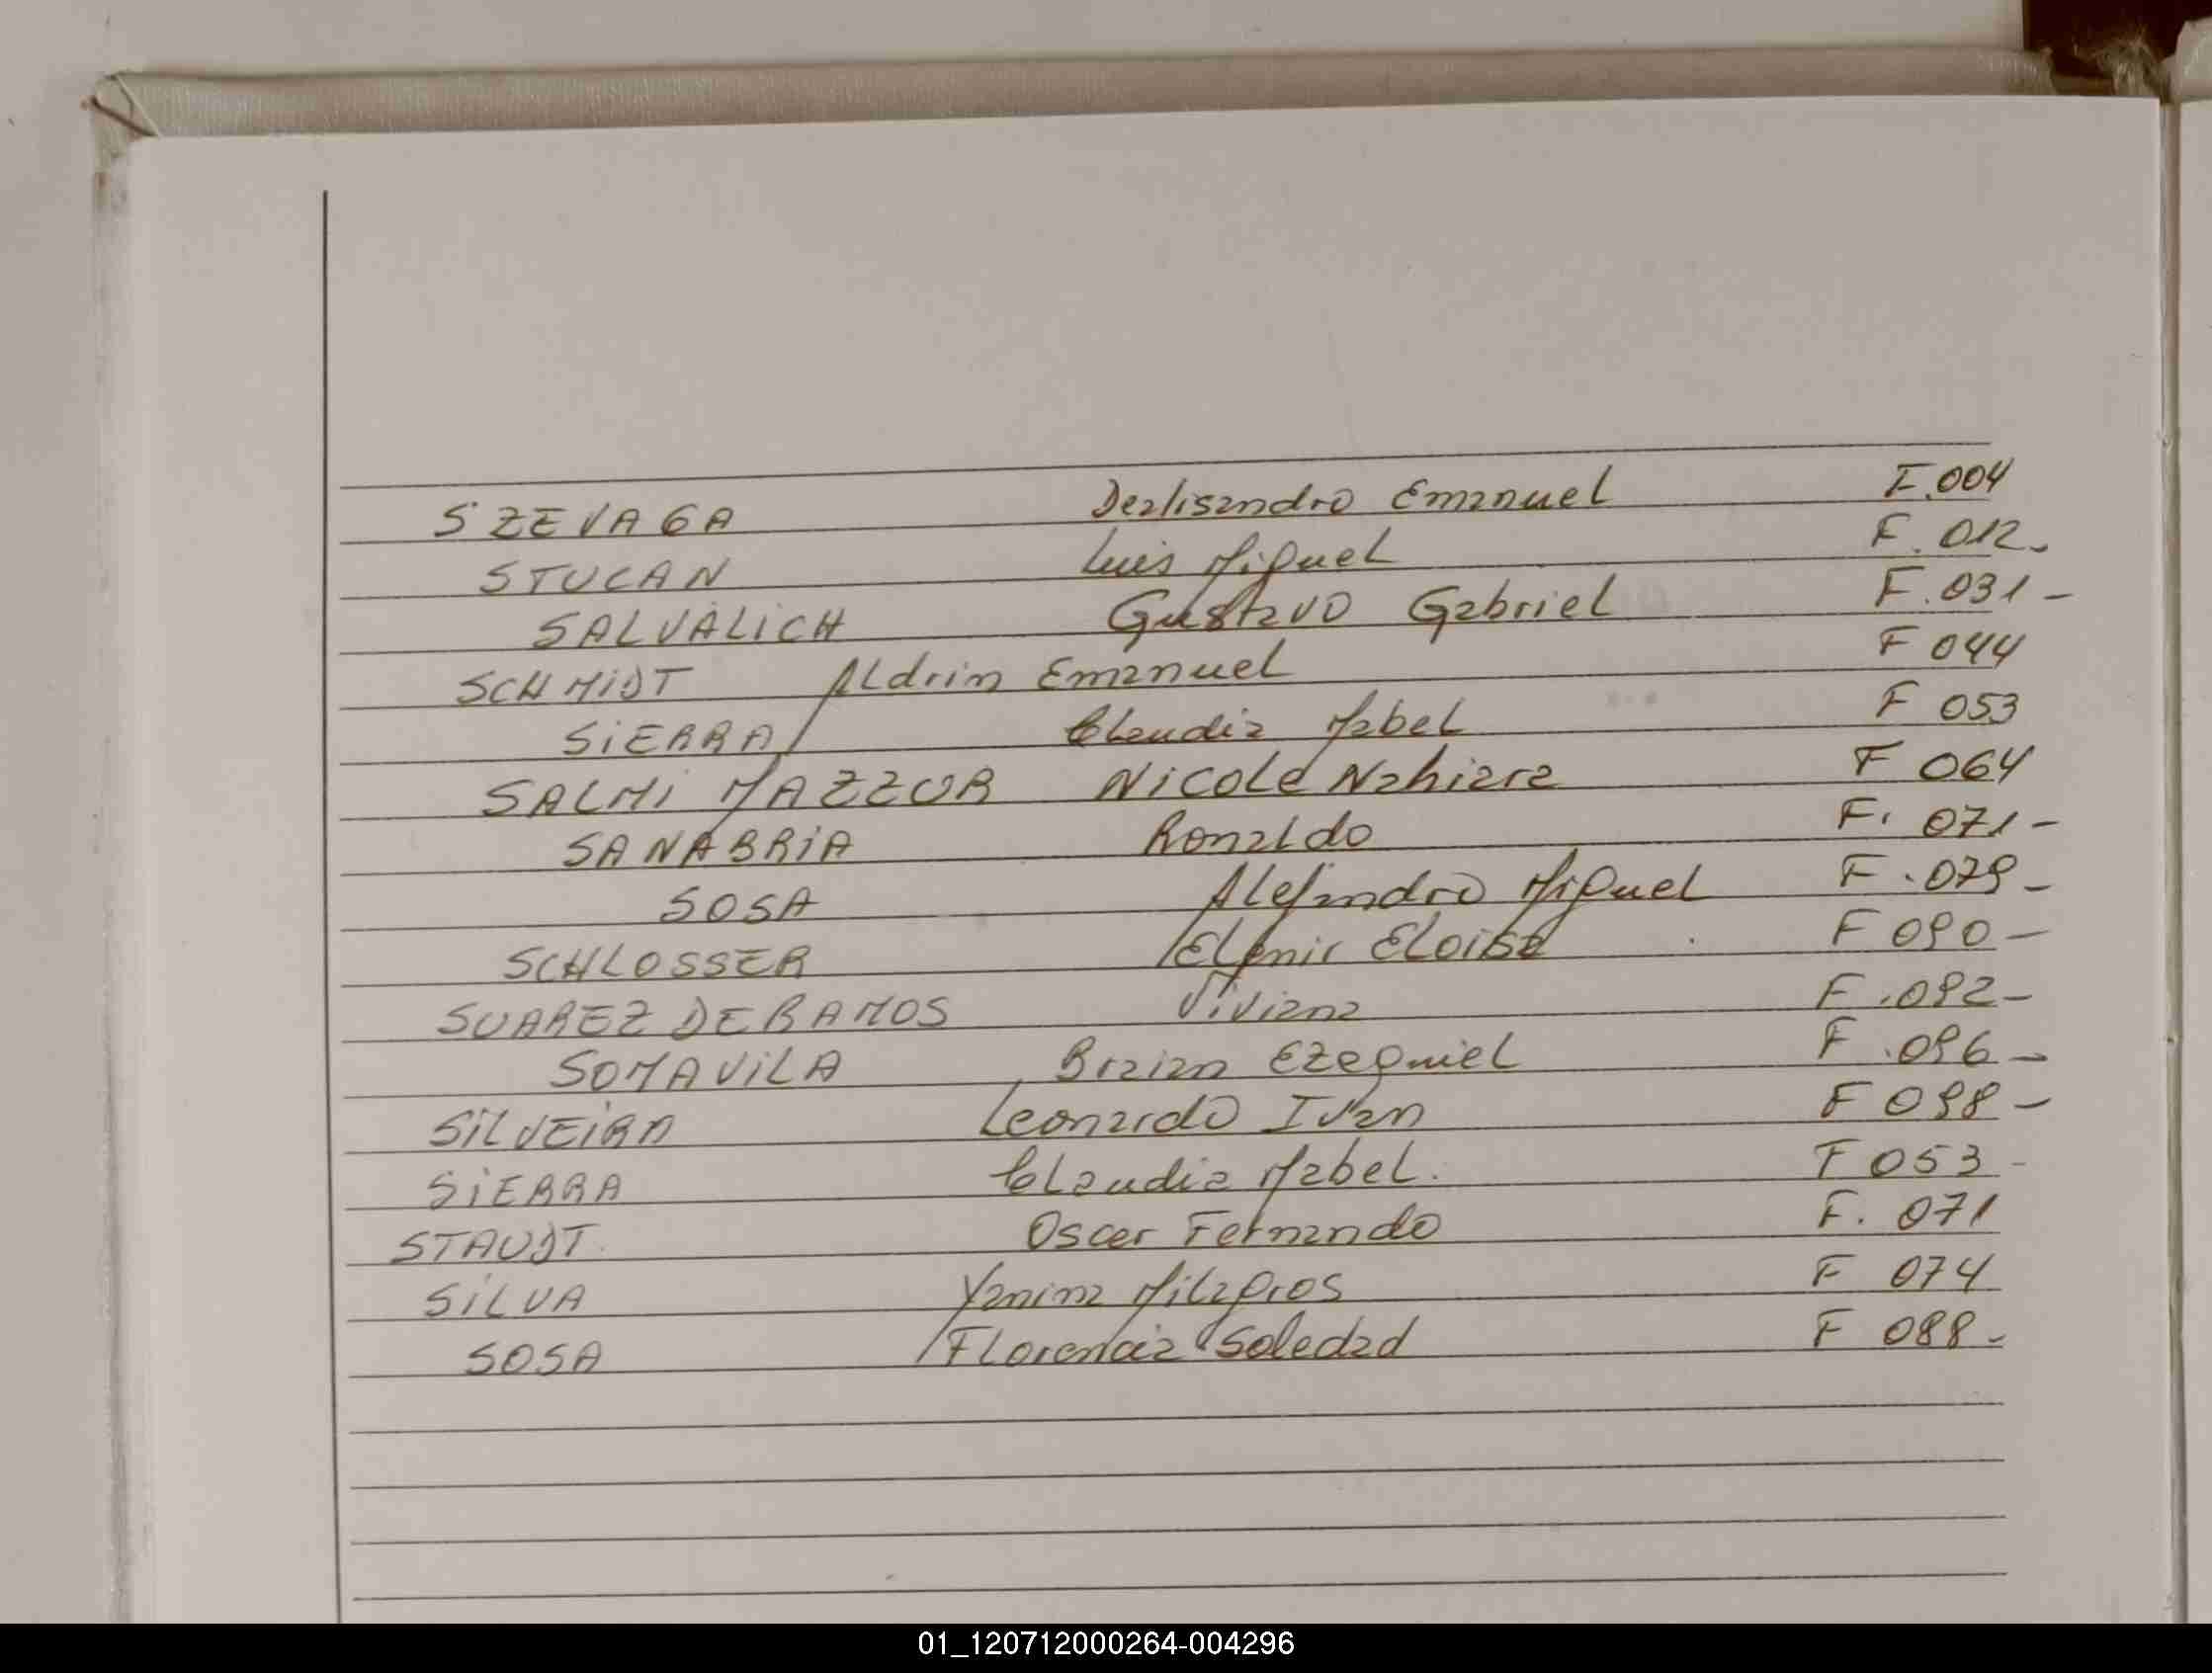 SZEVAGA Dezlisandro Emanuel F.004
STUCAN Luis Miguel F. 012-
SALVALICH Gustavo Gabriel F. 031-
SCHMIDT Aldrin Emanuel F 044
SIERRA Claudia Mabel F 053
SALMI MAZZUR Nicole Nahiara F 064
SANABRIA Ronaldo F. 071-
SOSA Alejandro Miguel F. 079-
SCHLOSSER Eloisa F 090-
SUAREZ DE RAMOS Viviana F. 092-
SOMAVILA Braian Ezequiel F. 096-
SILVEIRA Leonardo Ivan F 098-
SIERRA Claudia Mabel. F 053-
STAUDT. Oscar Fernando F. 071
SILVA Yanina Milagros F 074
SOSA Florencia Soledad F 088-
01_120712000264-004296